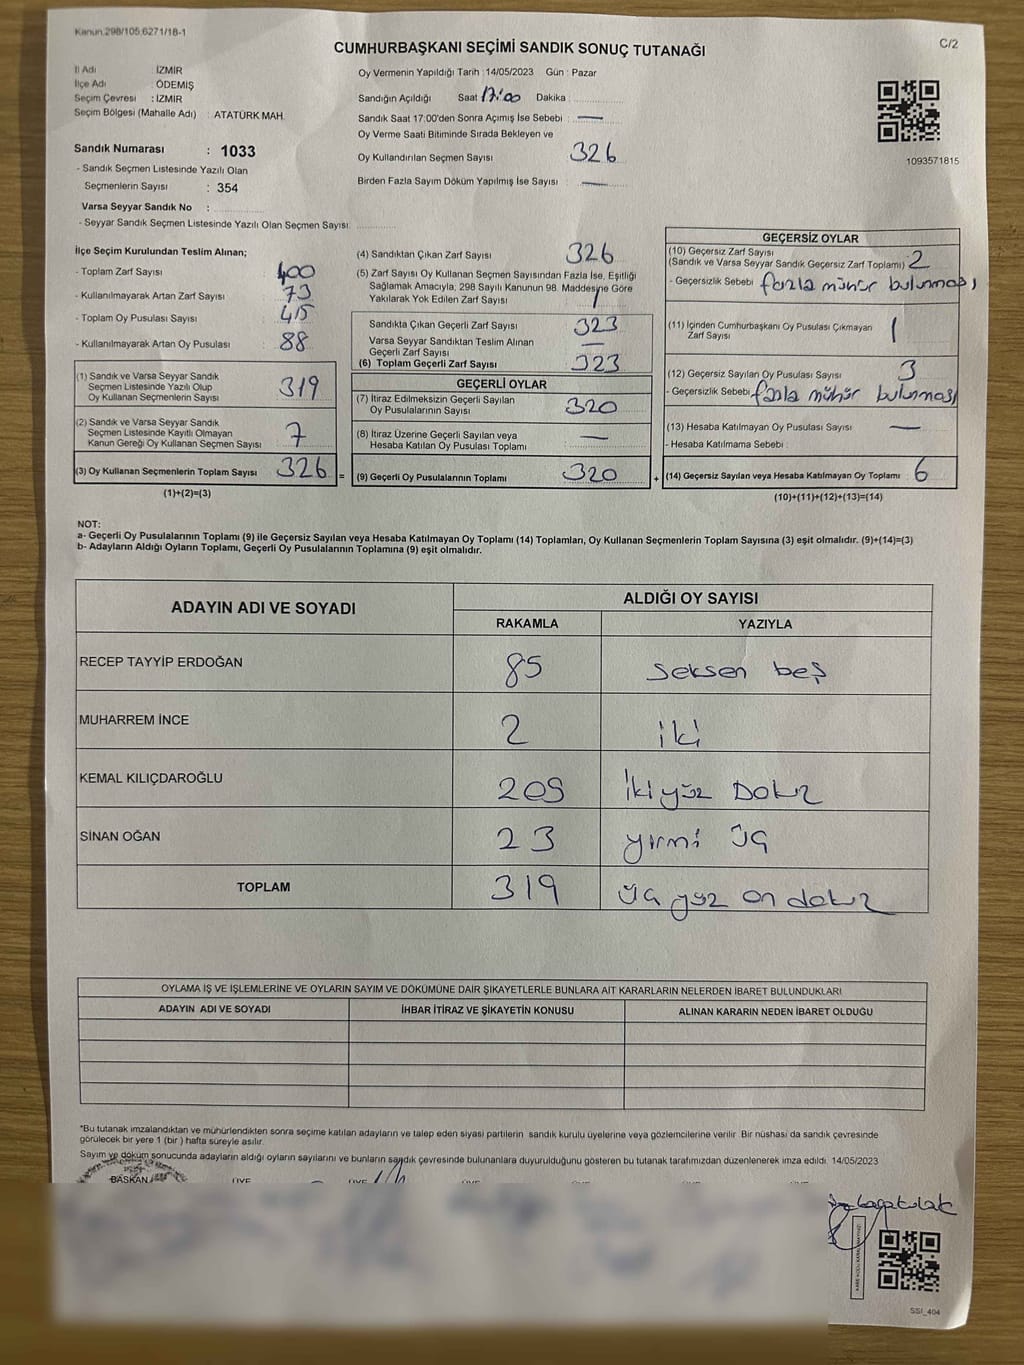 Kanun 298/105,6271/18-1
C/2
CUMHURBAŞKANI SEÇİMİ SANDIK SONUÇ TUTANAĞI
İl Adı : İZMİR
İlçe Adı : ÖDEMİŞ
Seçim Çevresi : İZMİR
Seçim Bölgesi (Mahalle Adı) : ATATÜRK MAH.
Sandık Numarası : 1033
- Sandık Seçmen Listesinde Yazılı Olan
Seçmenlerin Sayısı : 354
Varsa Seyyar Sandık No :
- Seyyar Sandık Seçmen Listesinde Yazılı Olan Seçmen Sayısı:
Oy Vermenin Yapıldığı Tarih :14/05/2023 Gün : Pazar
Sandığın Açıldığı Saat 17:00 Dakika
Sandık Saat 17:00'den Sonra Açımış İse Sebebi : —
Oy Verme Saati Bitiminde Sırada Bekleyen ve
Oy Kullandırılan Seçmen Sayısı 326
Birden Fazla Sayım Döküm Yapılmış İse Sayısı : —
1093571815
İlçe Seçim Kurulundan Teslim Alınan;
- Toplam Zarf Sayısı 400
- Kullanılmayarak Artan Zarf Sayısı : 73
- Toplam Oy Pusulası Sayısı : 415
- Kullanılmayarak Artan Oy Pusulası : 88
(1) Sandık ve Varsa Seyyar Sandık
Seçmen Listesinde Yazılı Olup
Oy Kullanan Seçmenlerin Sayısı 319
(2) Sandık ve Varsa Seyyar Sandık
Seçmen Listesinde Kayıtlı Olmayan
Kanun Gereği Oy Kullanan Seçmen Sayısı 7
(3) Oy Kullanan Seçmenlerin Toplam Sayısı 326 =
(1)+(2)=(3)
(4) Sandıktan Çıkan Zarf Sayısı 326
(5) Zarf Sayısı Oy Kullanan Seçmen Sayısından Fazla İse, Eşitliği
Sağlamak Amacıyla; 298 Sayılı Kanunun 98. Maddesine Göre
Yakılarak Yok Edilen Zarf Sayısı 1
Sandıkta Çıkan Geçerli Zarf Sayısı 323
Varsa Seyyar Sandıktan Teslim Alınan
Geçerli Zarf Sayısı —
(6) Toplam Geçerli Zarf Sayısı 323
GEÇERLİ OYLAR
(7) İtiraz Edilmeksizin Geçerli Sayılan
Oy Pusulalarının Sayısı 320
(8) İtiraz Üzerine Geçerli Sayılan veya
Hesaba Katılan Oy Pusulası Toplamı —
(9) Geçerli Oy Pusulalarının Toplamı 320 +
GEÇERSİZ OYLAR
(10) Geçersiz Zarf Sayısı
(Sandık ve Varsa Seyyar Sandık Geçersiz Zarf Toplamı) 2
- Geçersizlik Sebebi fazla mühür bulunması
(11) İçinden Cumhurbaşkanı Oy Pusulası Çıkmayan
Zarf Sayısı 1
(12) Geçersiz Sayılan Oy Pusulası Sayısı 3
- Geçersizlik Sebebi fazla mühür bulunması
(13) Hesaba Katılmayan Oy Pusulası Sayısı —
- Hesaba Katılmama Sebebi :
(14) Geçersiz Sayılan veya Hesaba Katılmayan Oy Toplamı 6
(10)+(11)+(12)+(13)=(14)
NOT:
a- Geçerli Oy Pusulalarının Toplamı (9) ile Geçersiz Sayılan veya Hesaba Katılmayan Oy Toplamı (14) Toplamları, Oy Kullanan Seçmenlerin Toplam Sayısına (3) eşit olmalıdır. (9)+(14)=(3)
b- Adayların Aldığı Oyların Toplamı, Geçerli Oy Pusulalarının Toplamına (9) eşit olmalıdır.
ADAYIN ADI VE SOYADI
ALDIĞI OY SAYISI
RAKAMLA YAZIYLA
RECEP TAYYİP ERDOĞAN 85 seksen beş
MUHARREM İNCE 2 iki
KEMAL KILIÇDAROĞLU 209 İki yüz Dokuz
SİNAN OĞAN 23 yirmi üç
TOPLAM 319 üç yüz on dokuz
OYLAMA İŞ VE İŞLEMLERİNE VE OYLARIN SAYIM VE DÖKÜMÜNE DAİR ŞİKAYETLERLE BUNLARA AİT KARARLARIN NELERDEN İBARET BULUNDUKLARI
ADAYIN ADI VE SOYADI İHBAR İTİRAZ VE ŞİKAYETİN KONUSU ALINAN KARARIN NEDEN İBARET OLDUĞU
*Bu tutanak imzalandıktan ve mühürlendikten sonra seçime katılan adayların ve talep eden siyasi partilerin sandık kurulu üyelerine veya gözlemcilerine verilir. Bir nüshası da sandık çevresinde
görülecek bir yere 1 (bir ) hafta süreyle asılır.
Sayım ve döküm sonucunda adayların aldığı oyların sayılarını ve bunların sandık çevresinde bulunanlara duyurulduğunu gösteren bu tutanak tarafımızdan düzenlenerek imza edildi. 14/05/2023
BAŞKAN
SSI_404